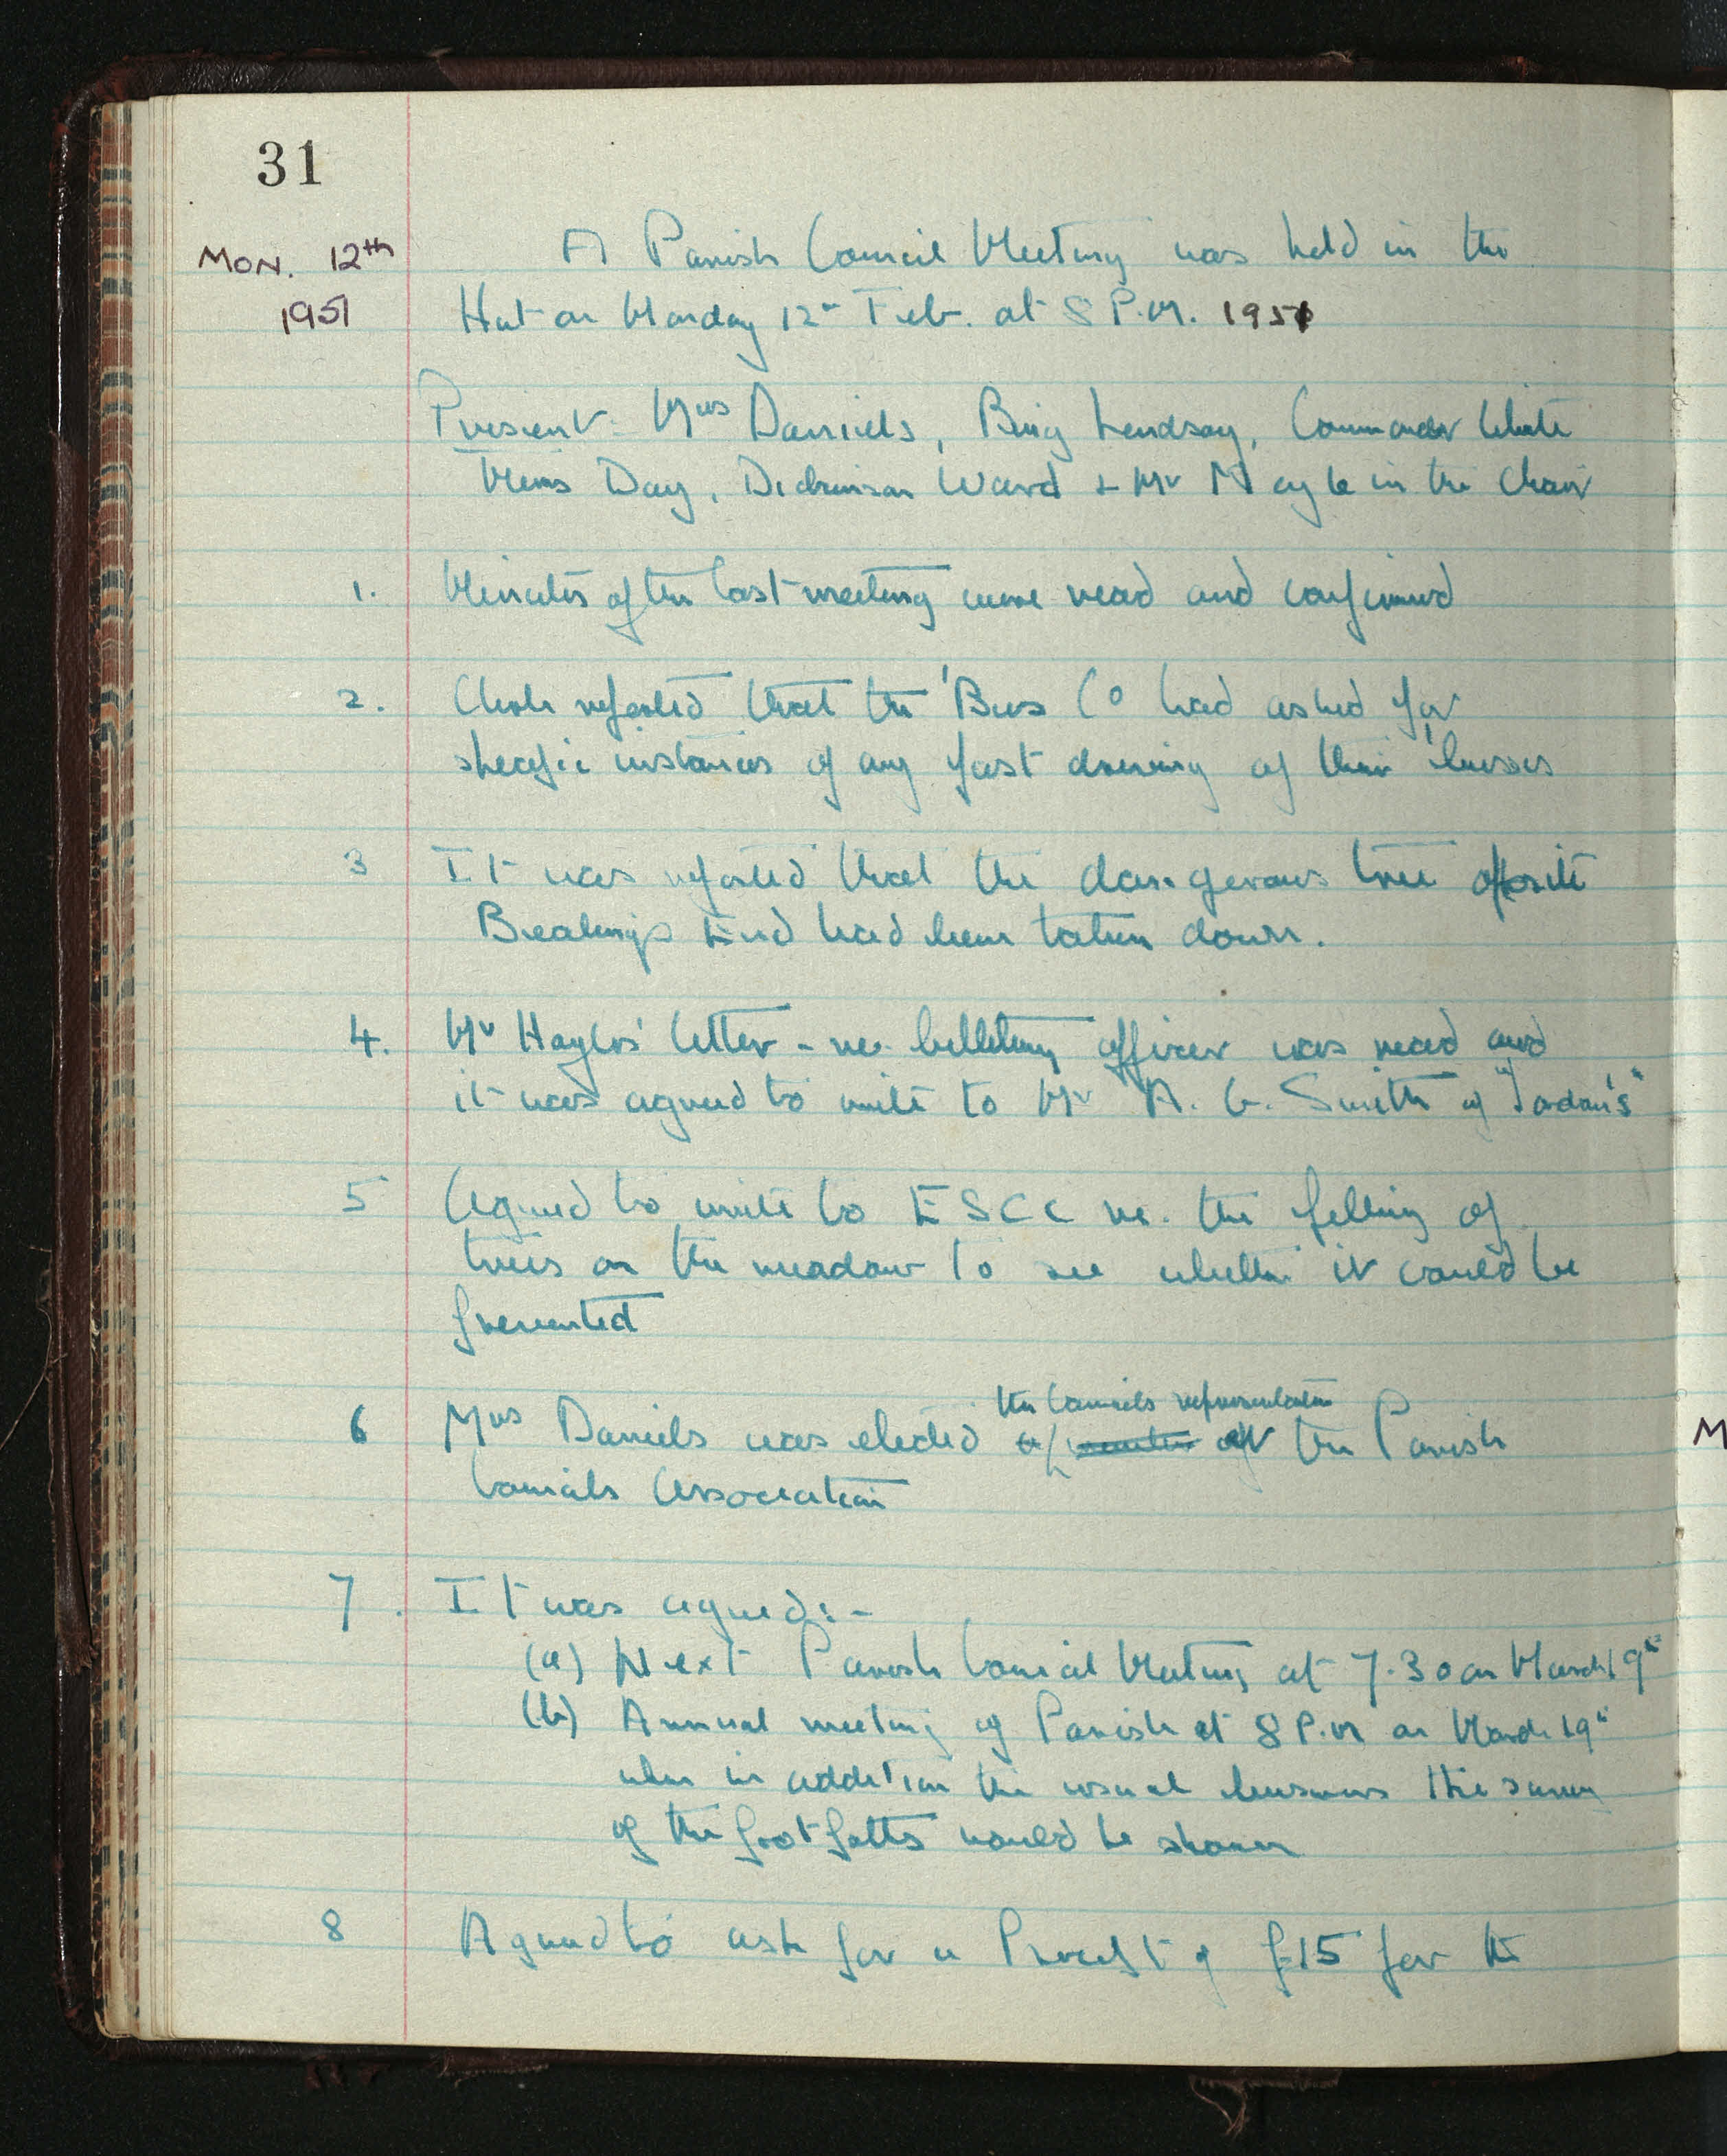 31
MON. 12th
1951
A Parish Council Meeting was held in the
Hut on Monday 12th Feb. at 8 P.M. 1951
Present: Mrs Daniels, Brig Lindsay, Commander White
Messrs Day, Dickinson Ward + Mr Nayle in the Chair
1. Minutes of the last meeting were read and confirmed
2. Clerk reported that the 'Bus Co had asked for
specific instances of any fast driving of their 'busses
3 It was reported that the dangerous tree opposite
Bealings End had been taken down.
4. Mr Hayles' letter - re. billeting officer was read and
it was agreed to write to Mr A. G. Smith of "Jordan's"
5 Agreed to write to ESCC re. the felling of
trees on the meadow to see whether it could be
prevented
6 Mrs Daniels was elected the Councils representative of the Parish
Councils Association
7. It was agreed:-
(a) Next Parish Council Meeting at 7.30 on March 19th
(b) Annual meeting of Parish at 8 P.M on March 19th
when in addition the usual business the survey
of the footpaths would be shown
8 Agreed to ask for a Precept of £15 for the
M